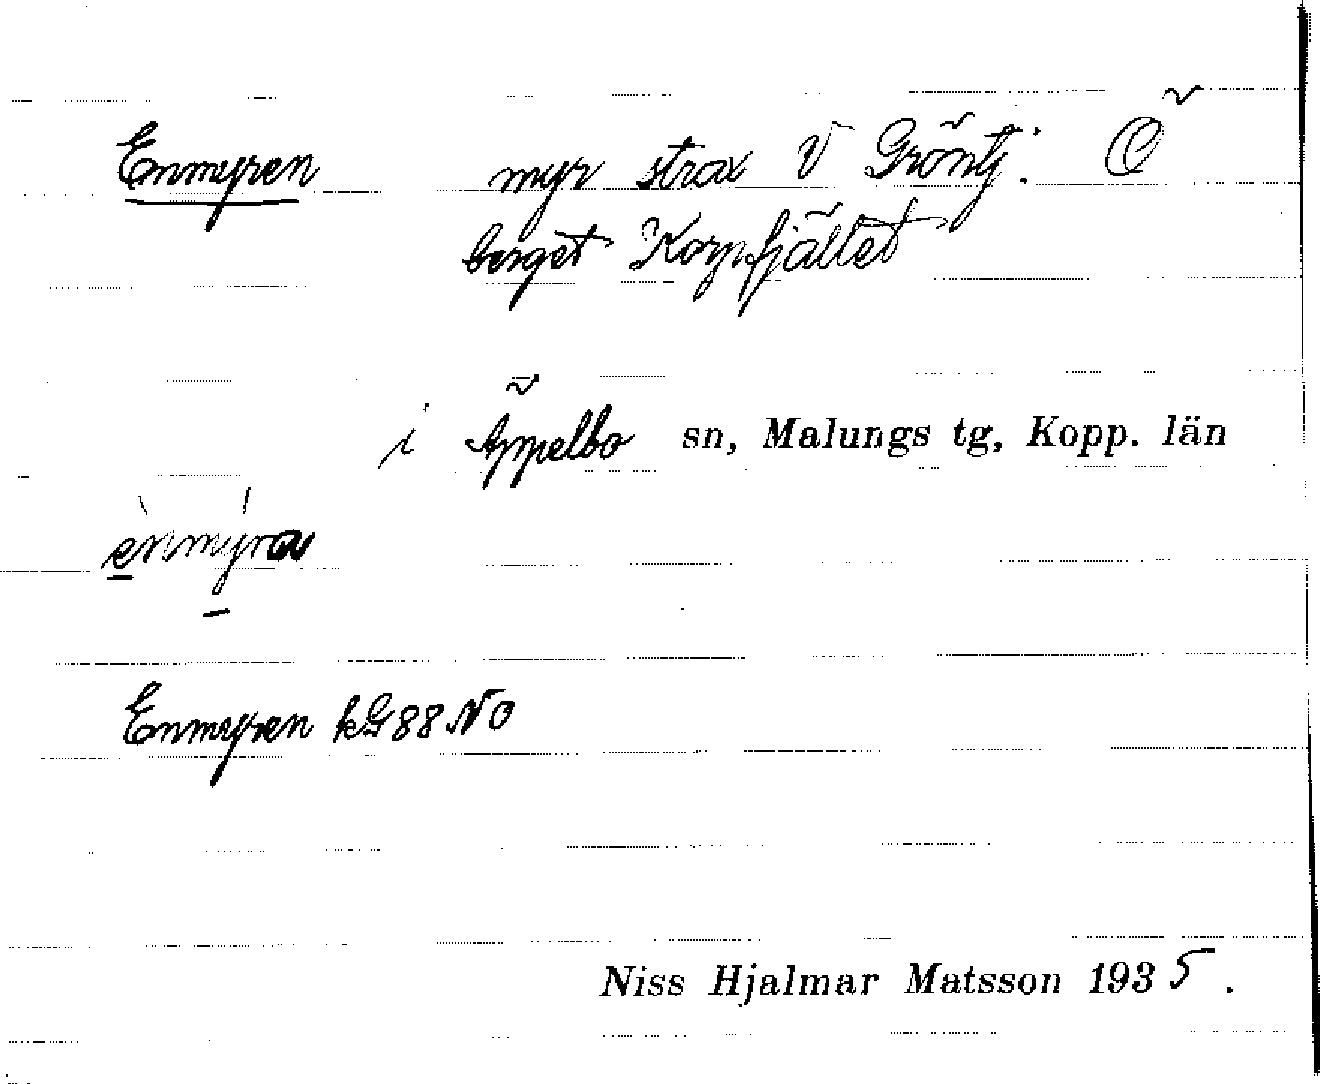 Enmyren myr strax V Gröntj: Ö
berget Korpfjället
i Äppelbo sn, Malungs tg, Kopp. län
ènmýra
Enmyren kG 88 NO
Niss Hjalmar Matsson 1935.